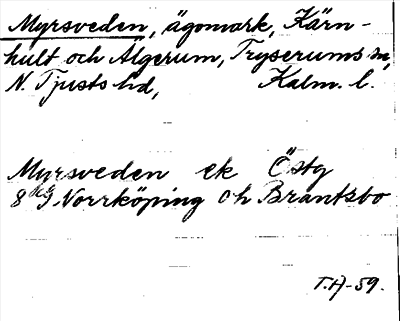 Myrsveden, ägomark, Kärn-
hult och Älgerum, Tryserums sn,
N. Tjusts hd, Kalm. l.
Myrsveden ek Östg
8 hG Norrköping Oh Brantsbo
T.A-59.